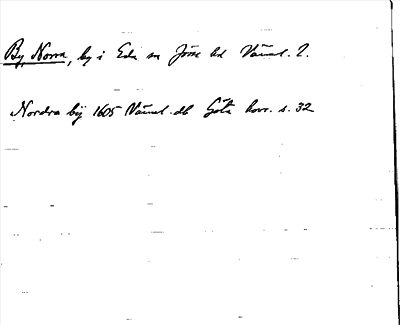 By, Norra, by i Eda sn Jösse hd Värml. l.
Nordra bij 1605 Värml. db Göta hovr. s. 32